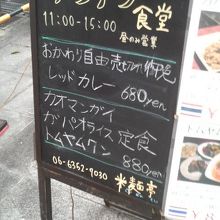 食堂
11:00-15:00
昼のみ営業
おかわり自由
レッドカレー 680yen
カオマンガイ
ガパオライス 定食
トムヤムクン 880yen
06-6352-9030 米麺亭